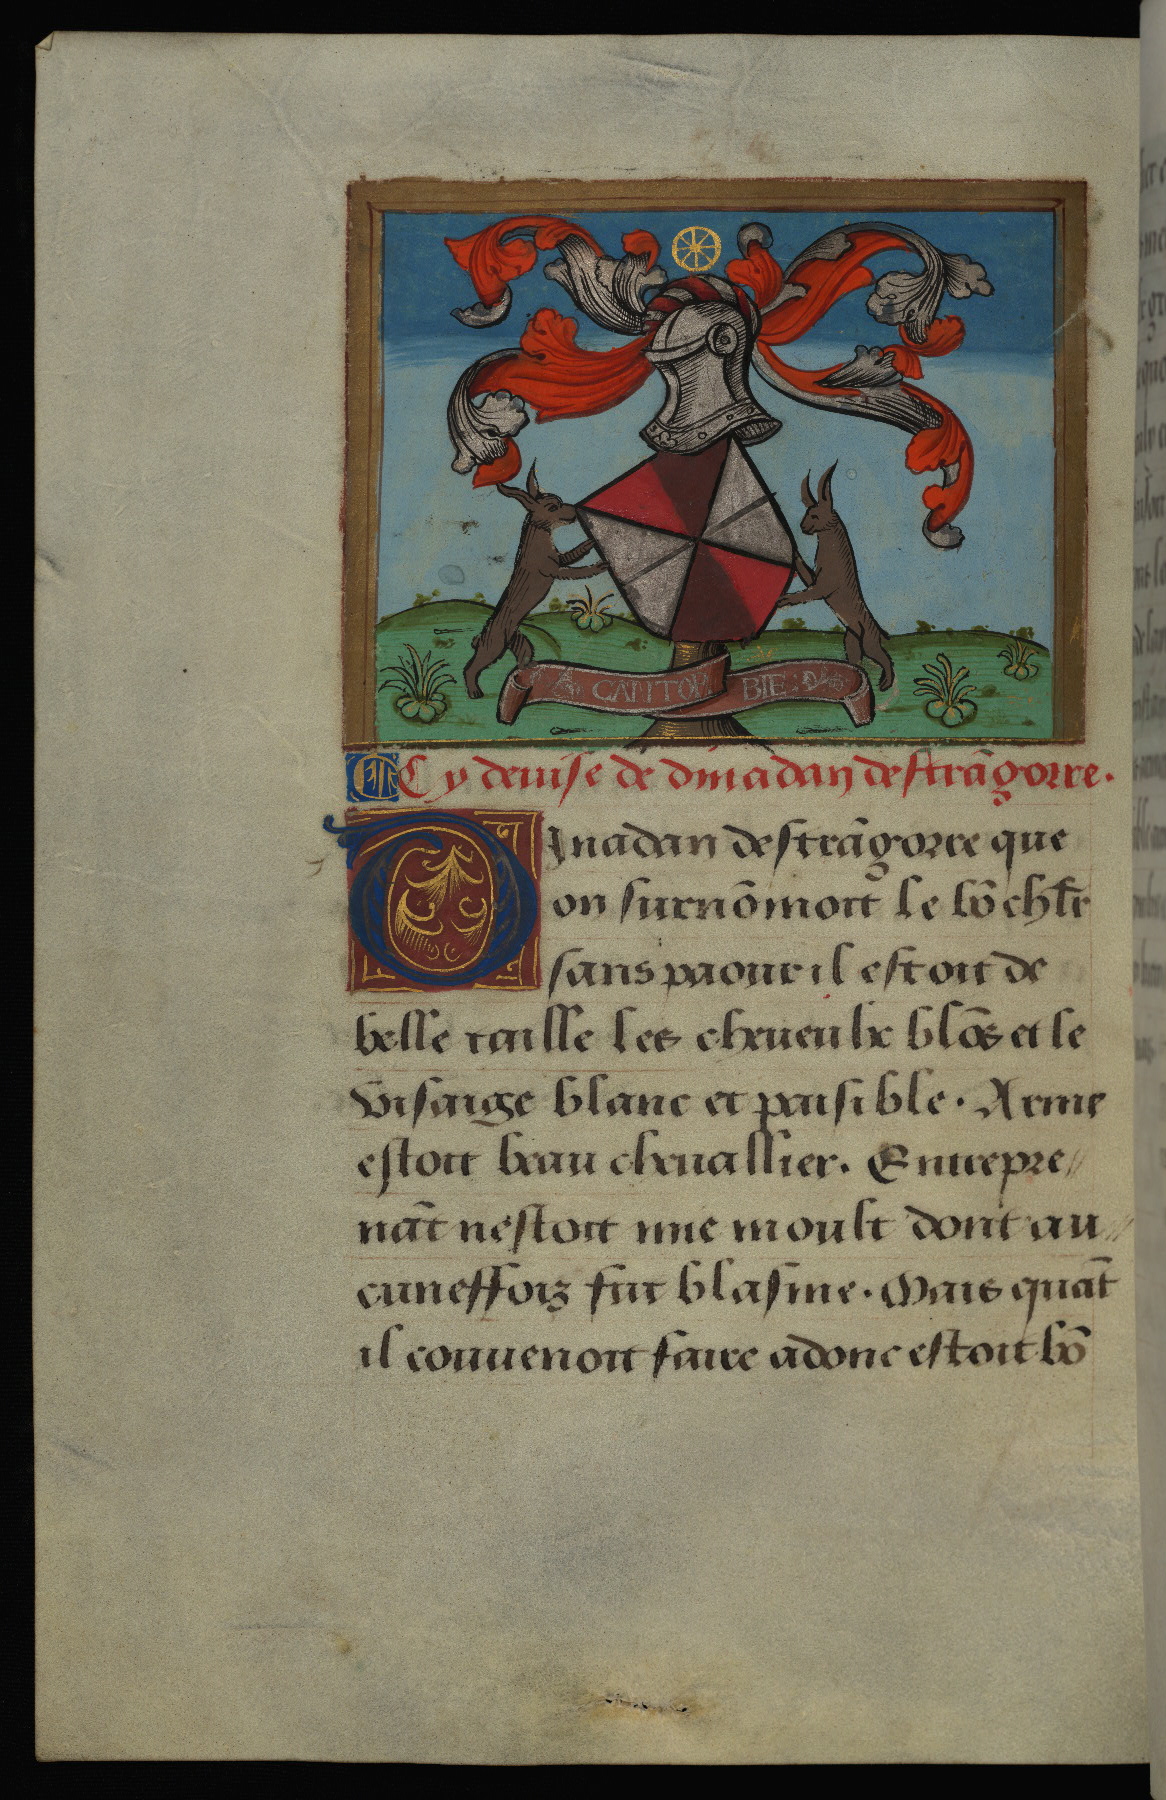 CANTON BIEN
Cy deuise de dinadan destrãgorre.
Dinadan destrãgorre que
on surnõmoit le bõ chlr
sans paour il estoit de
belle taille les cheueulx blõs et le
visaige blanc et paisible. Arme
estoit beau cheuallier. Entrepre//
nãt nestoit mie moult dont au//
cuneffoiz fut blasme. Mais quãt
il conuenoit faire adonc estoit bõ